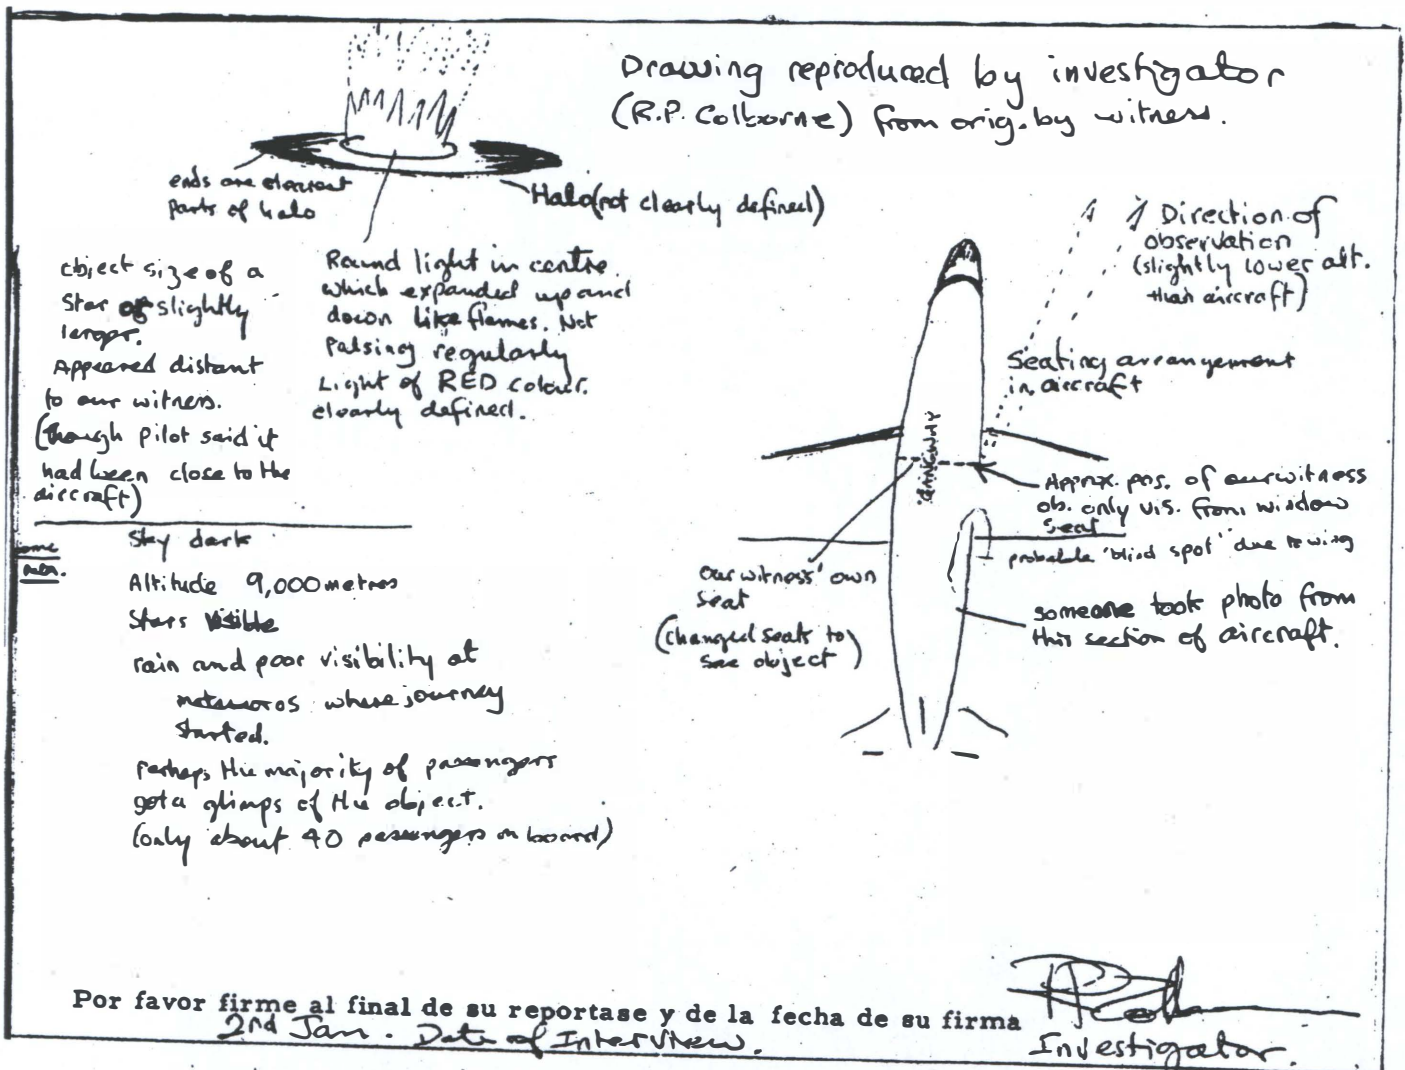 Drawing reproduced by investigator
(R.P. Colborne) from orig. by witness.
ends are clearest
parts of halo
Halo (not clearly defined)
object size of a
star or slightly
larger.
Appeared distant
to our witness.
(though pilot said it
had been close to the
aircraft)
Round light in centre
which expanded up and
down like flames. Not
Pulsing regularly
Light of RED colour.
clearly defined.
Direction of
observation
(slightly lower alt.
than aircraft)
Seating arrangement
in aircraft
GANGWAY
Approx. pos. of our witness
ob. only vis. from window
seat
probable 'blind spot' due to wing
our witness' own
seat
(changed seats to
see object)
someone took photo from
this section of aircraft.
Sky dark
Altitude 9,000 metres
Stars visible
rain and poor visibility at
matamoros where journey
started.
Perhaps the majority of passengers
got a glimps of the object.
(only about 40 passengers on board)
Por favor firme al final de su reportase y de la fecha de su firma
2nd Jan. Date of Interview.
Investigator.